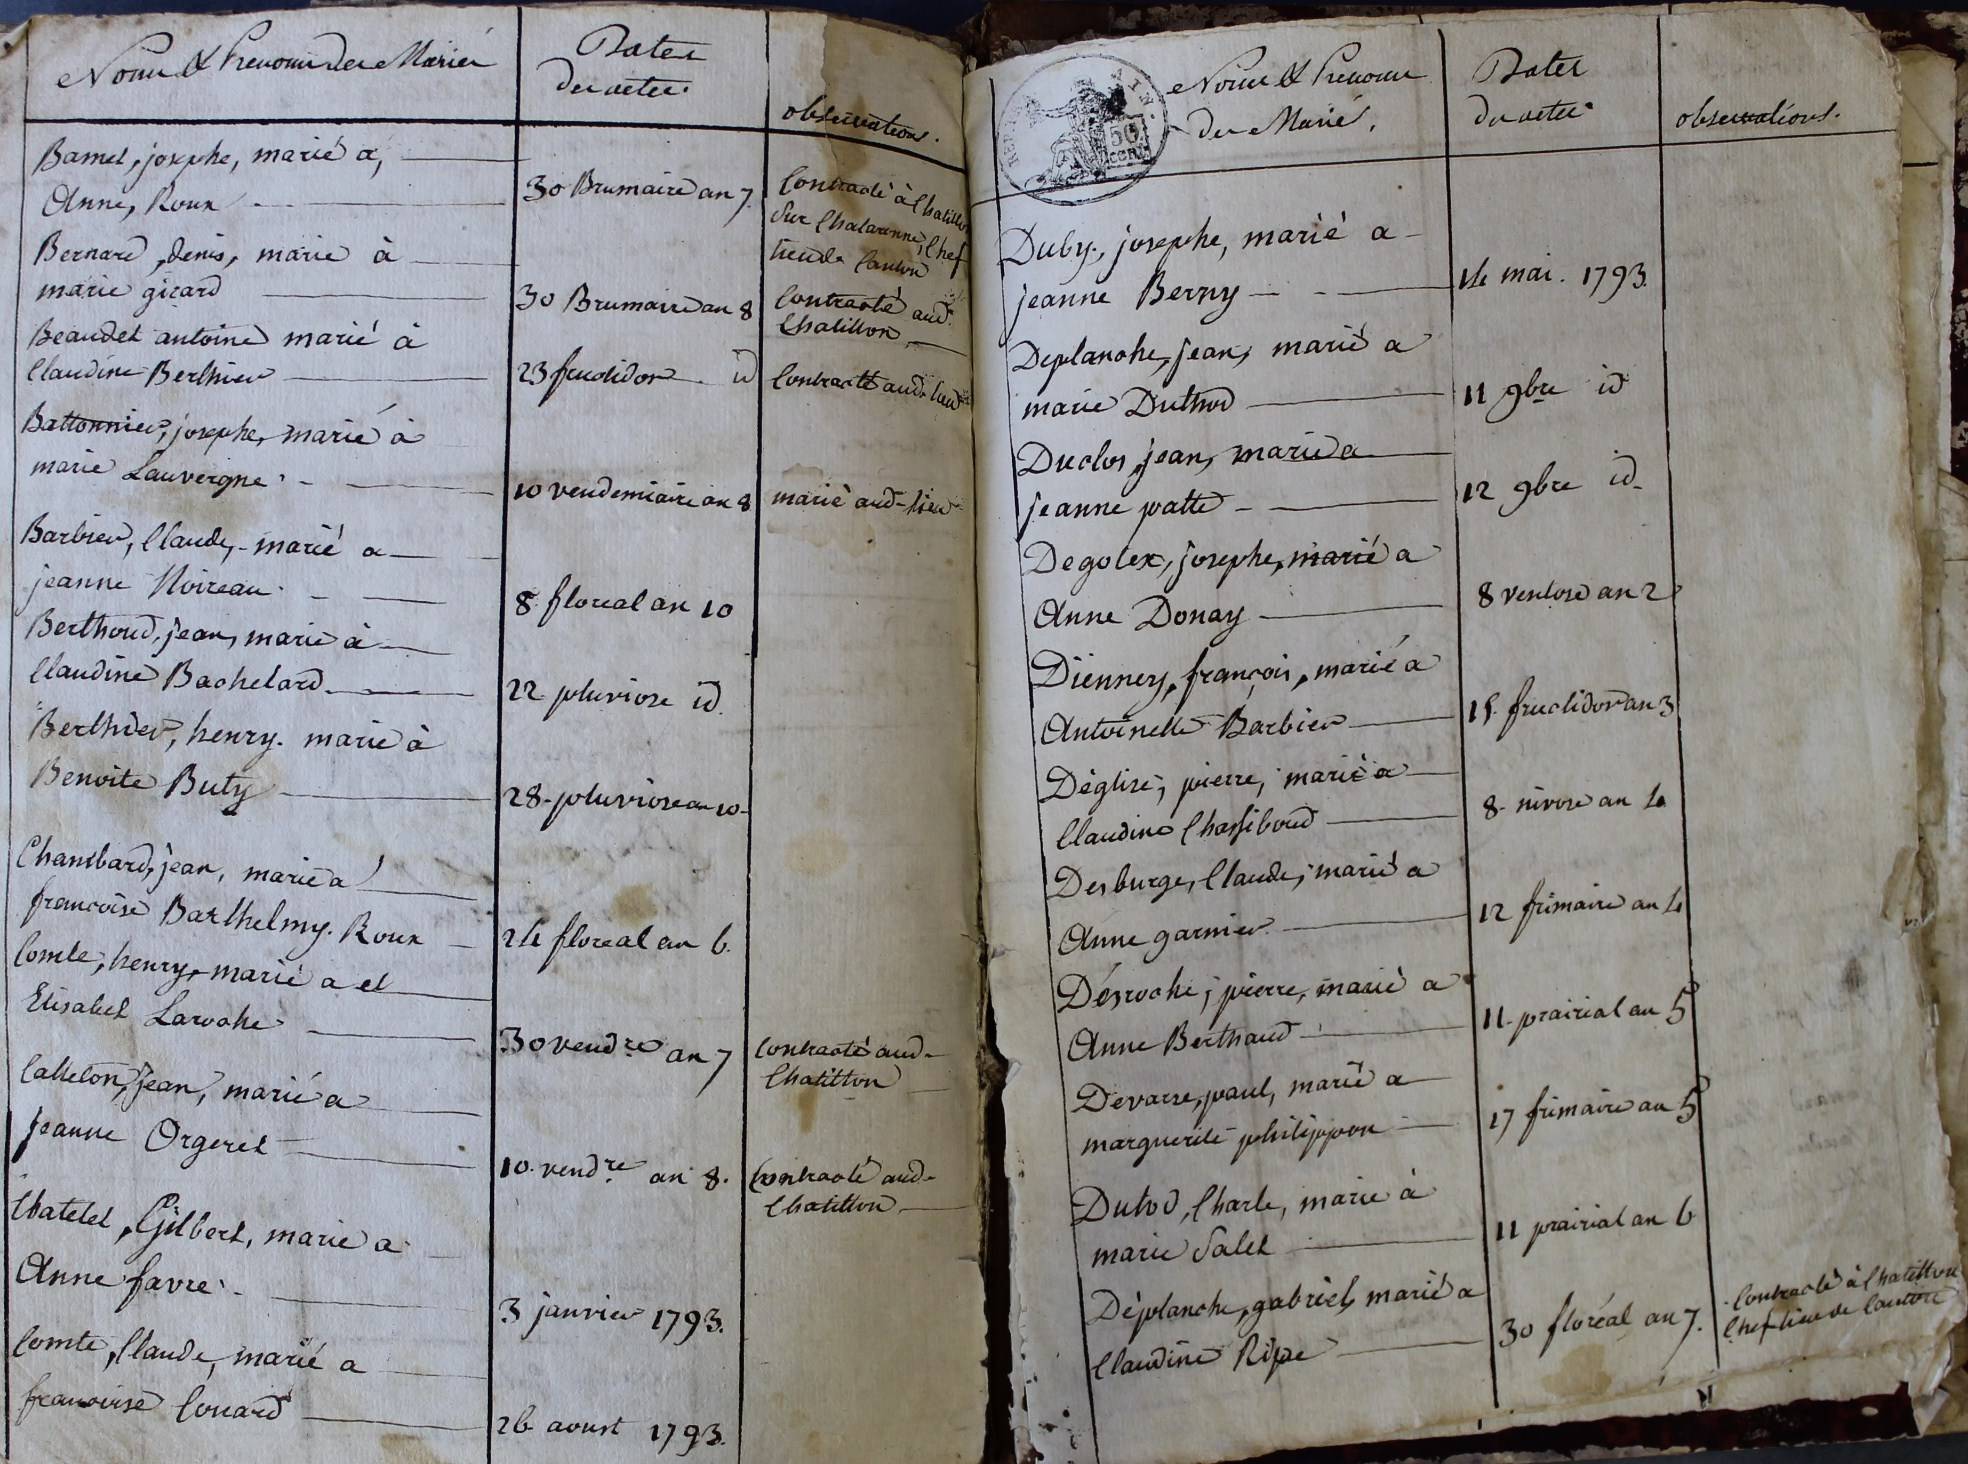 Noms & Prenoms des Mariés
Dates
des actes.
observations.
Bamet, josephe, marié a,
Anne, Roux
30 Brumaire an 7
Contracté à Chatillon
Sur Chalaronne, Chef
lieu de Canton
Bernard, denis, marié à
marie girard
30 Brumaire an 8
Contracté aud.
Chatillon
Beaudet antoine marié à
Claudine Berthier
23 fructidor id
Contracté aud. lieu
Battonnier, josephe, marié à
marie Lauvergne
10 vendemiaire an 8
marié aud-lieu
Barbier, Claude, marié a
jeanne Noireau
8 floreal an 10
Berthoud, jean, marié à
Claudine Bachelard
22 pluviose id.
Berthier, henry. marié à
Benoite Buty
28 pluviose an 10
Chambard, jean, marié a
francoise Barthelmy. Roux
24 floreal an 6.
Comte, henry, marié a et
Elisabet Laroche
30 vend.re an 7
Contracté aud-
Chatillon
Catteton, jean, marié a
jeanne Orgeret
10. vend.re an 8.
Contracté aud-
Chatillon
Chatelet, Gilbert, marié a
Anne favre
3 janvier 1793.
Comte, Claude, marié a
francoise Couard
26 aoust 1793.
50
Noms & Prenoms
des Mariés,
Dates
des actes
observations.
Duby, josephe, marié a
jeanne Berny
14 mai. 1793.
Deplanche, jean, marié a
marie Duthod
11 9bre id
Duclos, jean, marié a
jeanne patte
12 9bre id
Degotex, josephe, marié a
Anne Donay
8 ventose an 2
Diennery, françois, marié a
Antoinette Barbier
15 fructidor an 3
Déglise, pierre, marié a
Claudine Chassiboud
8 nivose an 4
Desburge, Claude, marié a
Anne garnier
12 frimaire an 4
Désroche, pierre, marié a
Anne Berthaud
11 prairial an 5
Devarre, paul, marié a
marguerite philippon
17 frimaire an 5
Dutod, Charle, marié à
marie Salet
11 prairial an 6
Déplanche, gabriel, marié a
Claudine Ripe
30 floréal an 7.
Contracté à Chatillon
Chef lieu de Canton